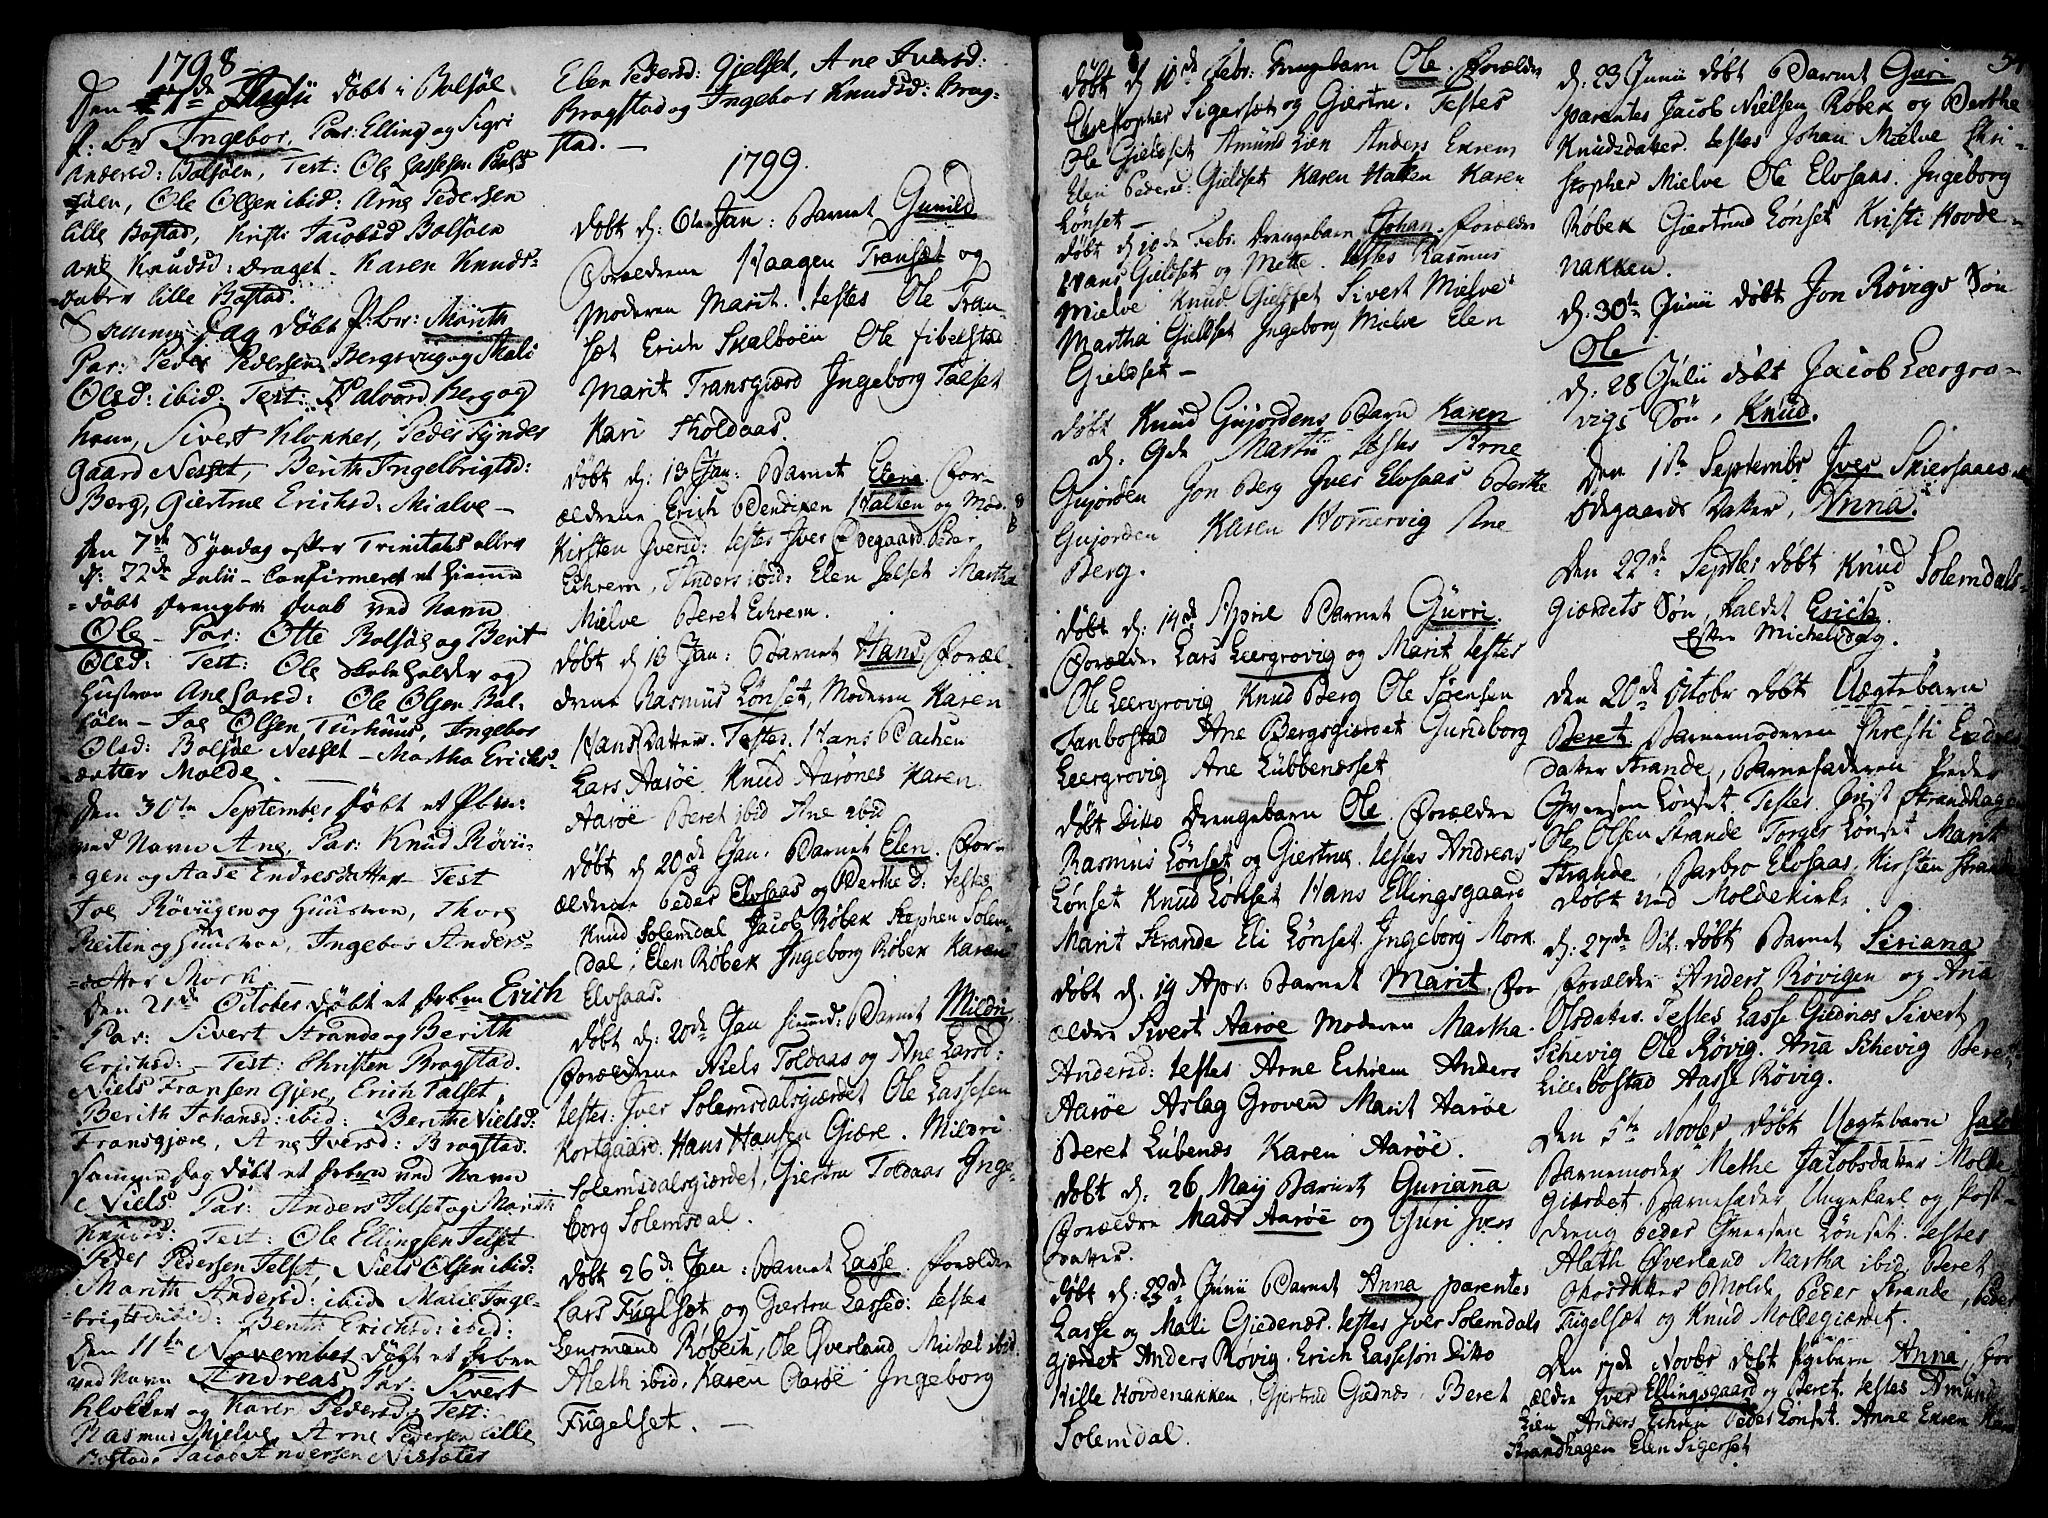 1798
Den 7de Julii døbt i Bolsøe
P: bn Ingebor. Par: Elling og Sigri
Andersd: Bolsøen, Test: Ole Lassesen Bols
øen, Ole Olsen ibid: Arne Pedersen
lille Bostad, Kristi Jacobsd Bolsøen
Ane Knudsd: Draget. Karen Knuds-
datter lille Bostad.
Samme Dag døbt P: bn: Marith
Par: Peder Pedersen Bergsvig og Mali
Olsd: ibid: Test: Halvord Berg og
Kone, Sivert Klokker, Peder Tynder
gaard Nesset, Berith Ingelbrigtsd:
Berg, Giertrue Erichsd: Mialve -
Den 7de Syndag efter Trinitatis eller
d: 22de Julii - Confirmeret et hiemme
døbt drengebn daab ved Navn
Ole - Par: Otte Bolsøe og Berit
Olsd: Test: Ole
Hustrue Ane Larsd: Ole Olsen Bol-
søen - Joe Olsen Turhuus, Ingebor
Olsd: Bolsøe Nesset - Martha Erichs-
datter Molde.
Den 30te September døbt et Pbn:
ved Navn Ane, Par: Knud Røvii-
gen og Aase Endresdatter - Test
Joe Røviigen og Huustrue, Thore
Reiten og Huustrue, Ingebor Anders-
datter Mork.
Den 21de October døbt et drbn Erich
Par: Sivert Strande og Berith
Erichsd: - Test: Christen Bragstad.
Niels Fransen Gjere, Erich Talset
Berith Johansd: ibid: Berithe Nielsd:
Fransgjøre, Ane Iversd: Bragstad.
Samme Dag døbt et drbn ved Navn
Niels. Par: Anders Jelset og Marith
Knudsd: Test: Ole Ellingsen Jelset
Peder Pedersen Jelset, Niels Olsen ibid:
Marith Andersd: ibid Marie Inge-
brigtsd ibid: Berith Erichsd: ibid:
Den 11te November døbt et drben
ved Navn Andreas Par: Sivert
Klokker og Karen Pedersd: Test:
Rasmus Mjelve, Arne Pedersen lille
Bostad, Jacob Andersen Nissæter
Elen Pedersd: Gjelset, Ane Iversd:
Bragstad og Ingebor Knudsd: Brag-
stad. -
1799.
Døbt d: 6te Jan: Barnet Gunild
Forældrene Haagen Transæt og
Moderen Marit. testes Ole Tran-
sæt Erich Skalbøen Ole Fibelstad
Marit Transgiærd Ingeborg Talset
Kari Tholdaas.
døbt d: 13 Jan: Barnet Elena. For-
ældrene Erich Bendixen Hatten og Mod:
Kirsten Iversd: testes Iver Ødegaard Peder
Echrem, Anders ibid: Elen Jelset Martha
Mielve Beret Echrem.
døbt d 13 Jan: Barnet Hans, Foræl-
drene Rasmus Lønset, Moderen Karen
Hans Datter. Testes. Hans Bachen
Lars Aarøe Knud Aarønes Karen
Aarøe Beret ibid Ane ibid
døbt d 20de Jan: Barnet Elen. For-
ældrene Peder Elvsaas og Berthe d: testes
Knud Solemdal Jacob Røbek Stephen Solem-
dal, Elen Røbek Ingeborg Røbek Karen
Elvsaas.
døbt d: 20de Jan simul: Barnet Mildri
Forældrene Niels Toldaas og Ane Larsd:
testes: Iver Solemsdalsgiærdet Ole Lassesen
Kortgaard. Hans Hansen Giære. Mildri
Solemsdalsgiærdet, Giertru Toldaas Inge-
borg Solemsdal.
døbt 26de Jan: Barnet Lasse. Forældre
Lars Fuglset og Giertru Lassed: testes
Lensmand Røbech, Ole Øverland, Michel ibid
Aleth ibid, Karen Aarøe Ingeborg
Fugelset. -
døbt d 10de Febr: Drengebarn Ole. Forældre
Christopher Sigerset og Giærtru. Testes
Ole Gieldset Amund Lien Anders Exrem
Elen Peders: Gieldset Karen Hatten Karen
Lønset -
Døbt d 10de Febr: Drengebarn Johan. Forældre
Hans Gieldset og Mette. testes Rasmus
Mielve Knud Gieldset Sivert Mielve
Martha Gieldset Ingeborg Mielve Elen
Gieldset -
døbt Knud Gujordens Barn Karen
d. 9de Martii testes Arne
Gujorden Jon Berg Iver Elvsaas Berthe
Gujorden Karen Homervig Ane
Berg.
døbt d: 14de April Barnet Gurri.
Forældre Lars Leergrovig og Marit testes
Ole Leergrovig Knud Berg Ole Sørensen
Tanbostad Ane Bergsgiærdet Gundborg
Leergrovig Ane Lübbenesset
døbt Ditto Drengebarn Ole. Forældre
Rasmus Lønset og Giertrue. testes Andreas
Lønset Knud Lønset Hans Ellingsgaard
Marit Strande Eli Lønset. Ingeborg Mork.
døbt d. 19 Apr: Barnet Marit. For
ældre Sivert Aarøe Moderen Martha
Andersd: testes Arne Echrem Anders
Aarøe Aslag Groven Marit Aarøe
Beret Lübenes Karen Aarøe.
døbt d: 26 Maij Barnet Guriana
Forældre Mads Aarøe og Guri Ivers
Datter.
døbt d: 23de Junii Barnet Anna parentes
Lasse og Mali Giedenæs. testes Iver Solemdals
gjerdet Anders Røvig. Erich Lassesøn Ditto
Hille Hovdenakken, Gjertrud Giednæs. Beret
Solemdal.
d. 23 Junii døbt Barnet Guri
parentes Jacob Nielsen Røbek og Berthe
Knudsdatter. testes Johan Mielve Chri-
stopher Mielve Ole Elvsaas. Ingeborg
Røbek Giertrud Lønset Kristi Hovde-
nakken.
d. 30te Junii døbt Jon Røvigs Søn
Ole
d. 28 Julii døbt Jacob Leergro-
vigs Søn, Knud.
Den 1te Septembr Iver Skiersaas
ødegaards Datter, Anna.
Den 22de Septbr døbt Knud Solemdals-
giærdets Søn, kaldet Erich.
Efter Michelsdag.
Den 20de Octobr døbt Uægtebarn
Beret Barnemoderen Christi Endres
datter Strande, Barnefaderen Peder
Iversen Lønset Testes. Strandhagen
Ole Olsen Strande Torger Lønset Marit
Strande, Barbro Elvsaas, Kirsten Strande
døbt ved Moldekirke
d. 27de Oct: døbt Barnet Siriana
Forældre Anders Røvigen og Ana
Olsdatter. Testes Lasse Giednæs Sivert
Schevig Ole Røvig. Ana Schevig Beret
Lillebostad Aasse Røvig.
Den 5te Novbr døbt Uægtebarn Jacob
Barnemoder Methe Jacobsdatter Molde
giærdet. Barnefader Ungekarl og Post-
dreng Peder Iversen Lønset. testes
Aleth Øverland Martha ibid, Beret
Olsdatter Molde Peder Strande, Peder
Fugelset og Knud Moldegiærdet.
Den 17de Novbr døbt Pigebarn Anna, For
ældre Iver Ellingsgaard og Beret. testes Amund
Lien Anders Echren Peder Lønset. Anne Exren
Strandhagen Elen Sigerset